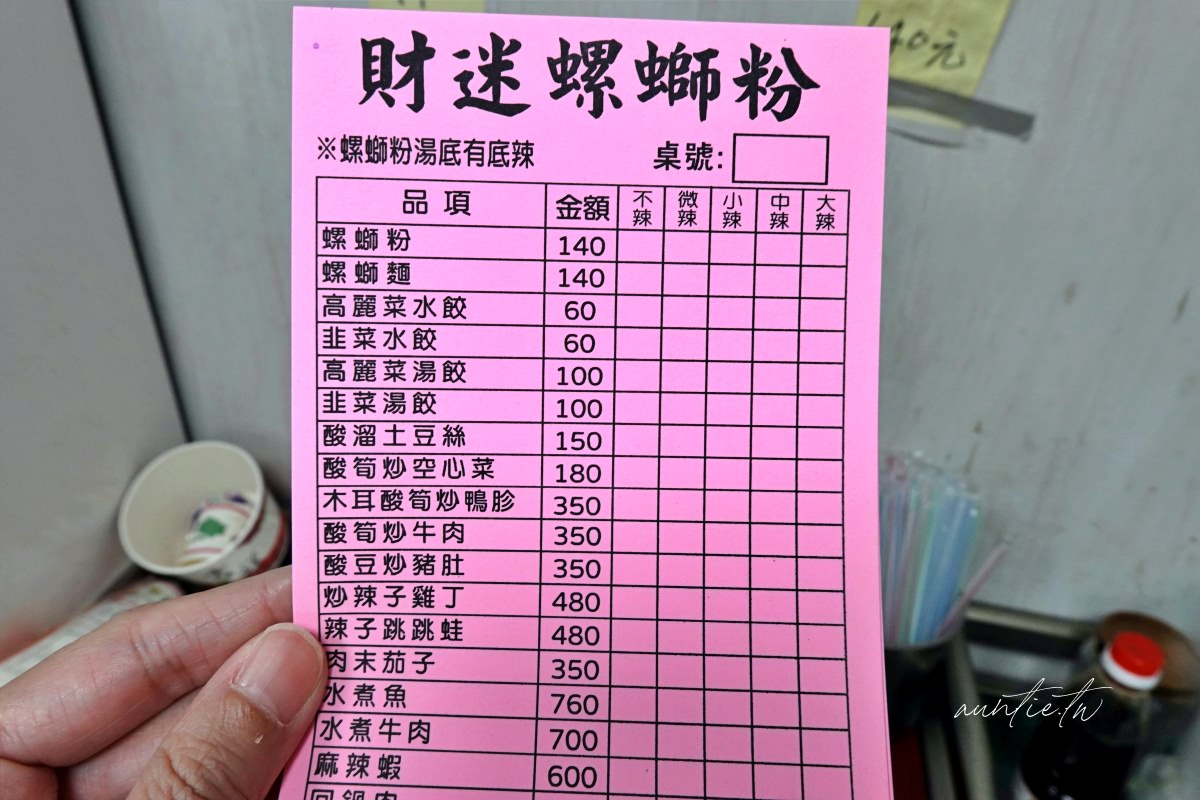 140元
財迷螺螄粉
※螺螄粉湯底有底辣 桌號:
品項 金額 不辣 微辣 小辣 中辣 大辣
螺螄粉 140
螺螄麵 140
高麗菜水餃 60
韭菜水餃 60
高麗菜湯餃 100
韭菜湯餃 100
酸溜土豆絲 150
酸筍炒空心菜 180
木耳酸筍炒鴨胗 350
酸筍炒牛肉 350
酸豆炒豬肚 350
炒辣子雞丁 480
辣子跳跳蛙 480
肉末茄子 350
水煮魚 760
水煮牛肉 700
麻辣蝦 600
回鍋肉
auntie.tw